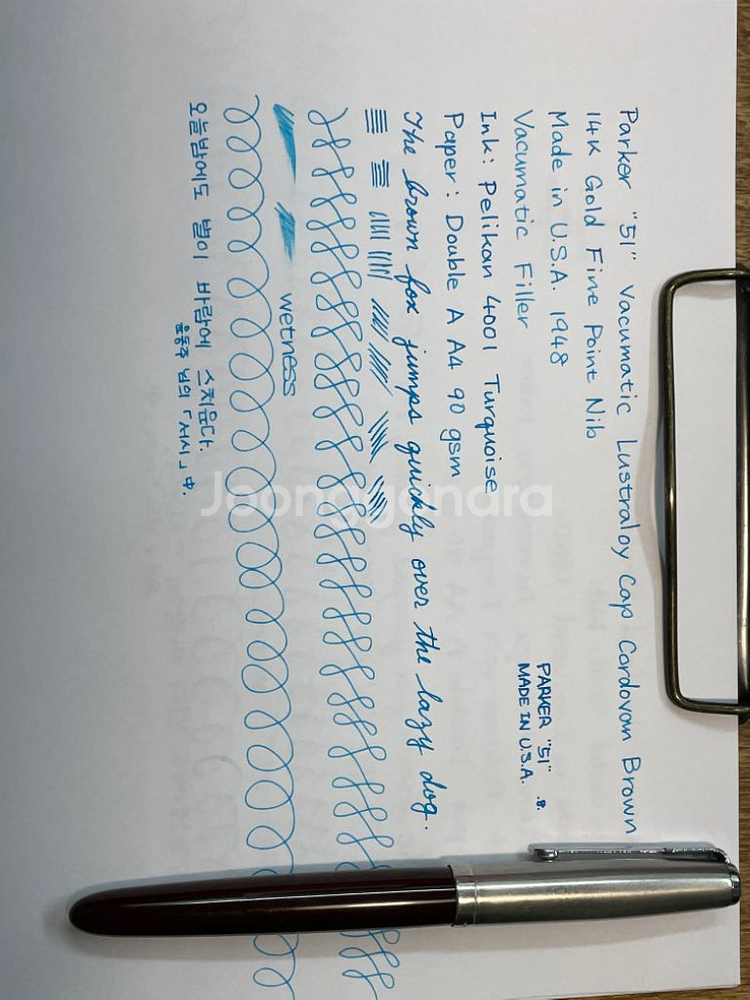 Parker "51" Vacumatic Lustraloy Cap Cordovan Brown
14K Gold Fine Point Nib
Made in U.S.A. 1948
Vacumatic Filler
PARKER "51" .8.
MADE IN U.S.A.
Ink: Pelikan 4001 Turquoise
Paper: Double A A4 90 gsm
The brown fox jumps quickly over the lazy dog.
wetness
오늘밤에도 별이 바람에 스치운다.
윤동주 님의 「서시」 中.
Joonggonara